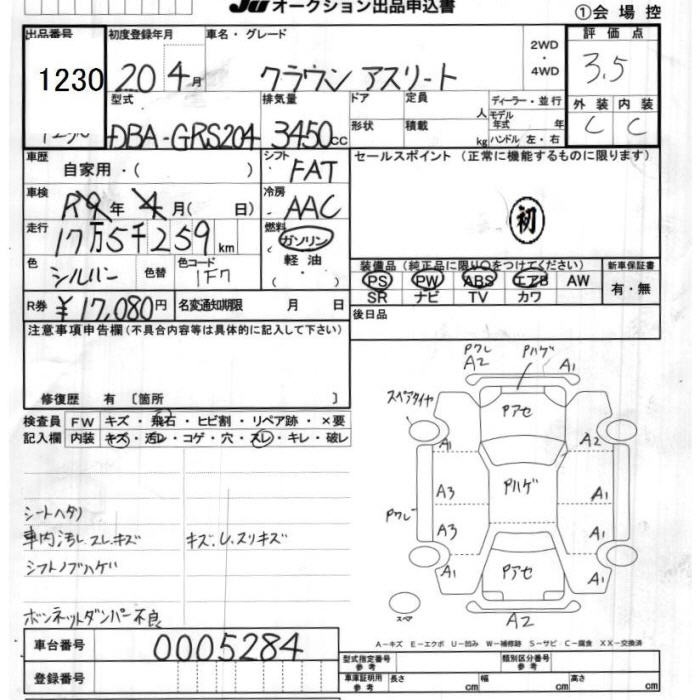 JU オークション出品申込書
①会場控
出品番号 初度登録年月 車名・グレード 2WD ・ 4WD 評価点
1230 20 4月 クラウン アスリート 3.5
型式 排気量 ドア 定員 人 ディーラー・並行 外装 内装
DBA-GRS204 3450cc 形状 積載 kg モデル年式 年 ハンドル 左・右 C C
車歴 シフト セールスポイント (正常に機能するものに限ります)
自家用・( ) FAT
車検 冷房
R9年 4月( 日) AAC 初
走行 燃料
17万5千259km ガソリン
軽油
( ・ )
色 色替 色コード
シルバー 1F7
装備品 (純正品に限り○をつけてください) 新車保証書
PS PW ABS エアB AW 有・無
SR ナビ TV カワ
R券 ¥17,080円 名変通知期限 月 日 後日品
注意事項申告欄 (不具合内容等は具体的に記入して下さい)
修復歴 有 〔箇所 〕
検査員 FW キズ・飛石・ヒビ割・リペア跡・×要
記入欄 内装 キズ・汚レ・コゲ・穴・スレ・キレ・破レ
シートヘタリ
車内汚レ.スレ.キズ キズ.U.スリキズ
シフトノブハゲ
ボンネットダンパー不良
Pワレ Pハゲ
A2 A1
スペアタイヤ Pアセ
A1 A2
A3 Pハゲ A1
Pワレ A3 A1
A1 Pアセ A1
スペア A2
A-キズ E-エクボ U-凹み W-補修跡 S-サビ C-腐食 XX-交換済
車台番号 0005284
登録番号
型式指定番号 参考 類別区分番号 参考
車庫証明用 参考 長さ cm 幅 cm 高さ cm